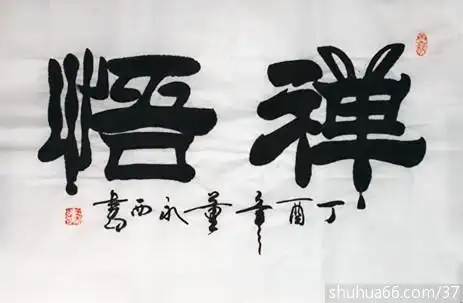 禅悟
丁酉年董永西書
shuhua66.com/37